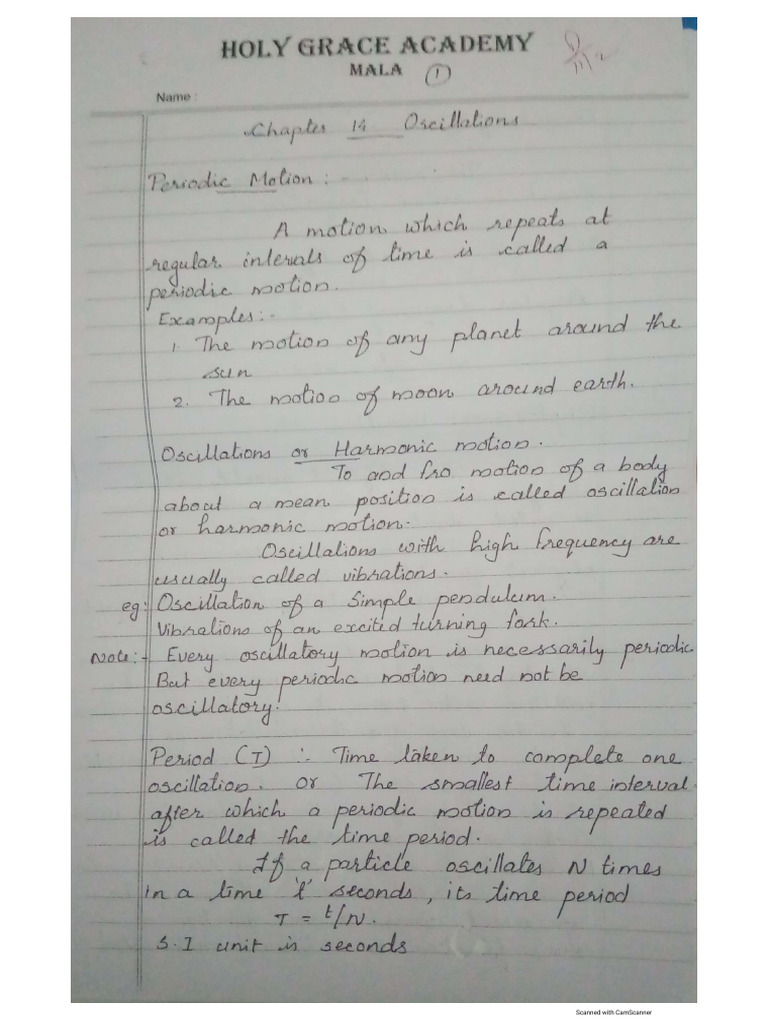 HOLY GRACE ACADEMY
MALA ①
Name :
Chapter 14 Oscillations
Periodic Motion :-
A motion which repeats at
regular intervals of time is called a
periodic motion.
Examples:-
1. The motion of any planet around the
sun
2. The motion of moon around earth.
Oscillations or Harmonic motion.
To and fro motion of a body
about a mean position is called oscillation
or harmonic motion.
Oscillations with high frequency are
usually called vibrations.
eg: Oscillation of a simple pendulum.
Vibrations of an excited turning fork.
Note:- Every oscillatory motion is necessarily periodic.
But every periodic motion need not be
oscillatory.
Period (T) :- Time taken to complete one
oscillation. or The smallest time interval
after which a periodic motion is repeated
is called the time period.
If a particle oscillates N times
in a time 't' seconds, its time period
T = t/N.
S.I unit is seconds
Scanned with CamScanner